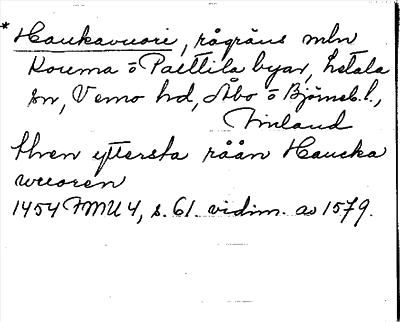 * Haukavuori, rågräns mln
Kouma o Palttila byar, Letala
sn, Vemo hd, Åbo o Björneb. l.,
Finland
then yttersta råån Haucka
wuoren
1454 FMU 4, s. 61. vidim. av 1579.